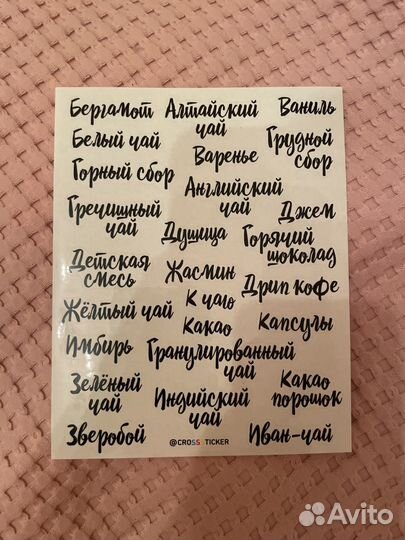 Бергамот
Алтайский
чай
Ваниль
Белый чай
Варенье
Грудной
сбор
Горный сбор
Английский
чай
Гречишный
чай
Душица
Джем
Горячий
шоколад
Детская
смесь
Жасмин
К чаю
Дрип кофе
Жёлтый чай
Какао
Капсулы
Имбирь
Гранулированный
чай
Зелёный
чай
Индийский
чай
Какао
порошок
Зверобой
@CROSSSTICKER
Иван-чай
Avito